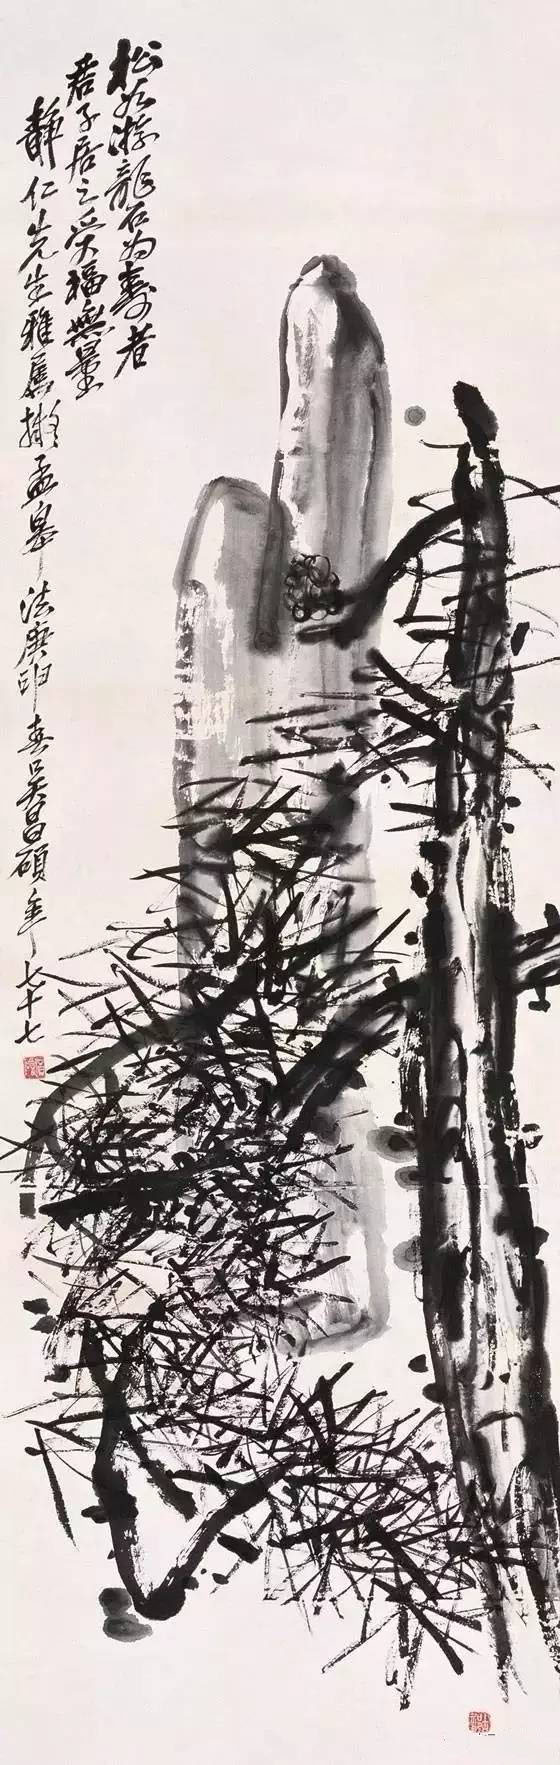 松如游龍石为壽者
君子居之受福無量
靜仁先生雅屬擬孟皋法庚申春吴昌碩年七十七